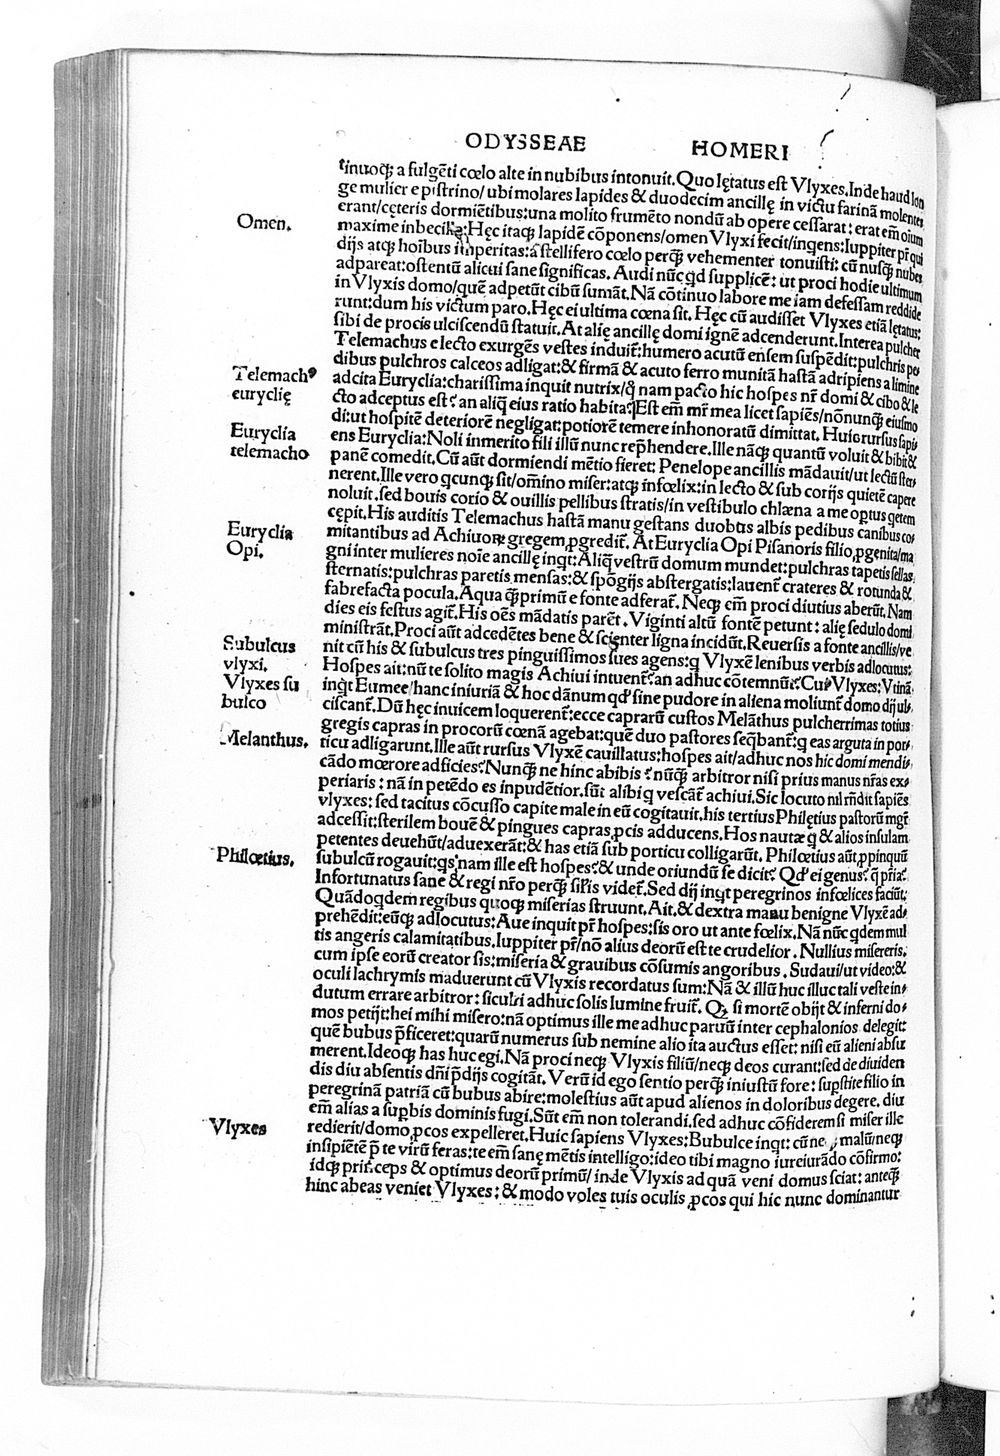 ODYSSEAE HOMERI
tinuoqꝫ a fulgẽti cœlo alte in nubibus intonuit. Quo lętatus est Vlyxes. Inde haud lon
ge mulier e pistrino/ ubi molares lapides & duodecim ancillę in victu farinã molentes
erant/ cęteris dormiẽtibus: una molito frumẽto nondũ ab opere cessarat: erat em̃ oĩum
Omen.
maxime inbecilla: Hęc itaqꝫ lapidẽ cõponens/ omen Vlyxi fecit/ ingens: Iuppiter pr̃ qui
dijs atqꝫ hoibus imperitas: a stellifero cœlo perqꝫ vehementer tonuisti: cũ nusqꝫ nubes
adpareat: ostentũ alicui sane significas. Audi nũc qd supplicẽ: ut proci hodie ultimum
in Vlyxis domo/ quẽ adpetũt cibũ sumãt. Nã cõtinuo labore me iam defessam reddide
runt: dum his victum paro. Hęc ei ultima cœna sit. Hęc cũ audisset Vlyxes etiã lętatus:
sibi de procis ulciscendũ statuit. At alię ancillę domi ignẽ adcenderunt. Interea pulcher
Telemachus e lecto exurgẽs vestes induit: humero acutũ ensem suspẽdit: pulchris pe
dibus pulchros calceos adligat: & firmã & acuto ferro munitã hastã adripiens a limine
Telemachꝰ
euryclię
adcita Euryclia: charissima inquit nutrix/ q̃ nam pacto hic hospes nr̃ domi & cibo & le
cto adceptus est? an aliq̃ eius ratio habita? Est em̃ mr̃ mea licet sapiẽs/ nõnunqꝫ eiusmo
di: ut hospitẽ deteriorẽ negligat: potiorẽ temere inhonoratũ dimittat. Huic rursus sapi
Euryclia
telemacho
ens Euryclia: Noli inmerito fili illũ nunc rep̃hendere. Ille nãqꝫ quantũ voluit & bibit &
panẽ comedit. Cũ aũt dormiendi mẽtio fieret: Penelope ancillis mãdauit/ ut lectũ ster
nerent. Ille vero qcunqꝫ sit/ om̃ino miser: atqꝫ infœlix: in lecto & sub corijs quietẽ capere
noluit. sed bouis corio & ouillis pellibus stratis/ in vestibulo chlæna a me optus qetem
cępit. His auditis Telemachus hastã manu gestans duobus albis pedibus canibus co
Euryclia
Opi.
mitantibus ad Achiuorꝝ gregem ꝓgredit̃. At Euryclia Opi Pisanoris filio ꝓgenita/ ma
gni inter mulieres noĩe ancillę inqt: Aliq̃ vestrũ domum mundet: pulchras tapetis sellas
sternatis: pulchras paretis mensas: & spõgijs abstergatis: lauent̃ crateres & rotunda &
fabrefacta pocula. Aqua qꝫprimũ e fonte adferat̃. Neqꝫ em̃ proci diutius aberũt. Nam
dies eis festus agit̃. His oẽs mãdatis parẽt. Viginti altũ fontẽ petunt: alię sedulo domi
ministrãt. Proci aũt adcedẽtes bene & scienter ligna incidũt. Reuersis a fonte ancillis/ ve
Subulcus
vlyxi.
nit cũ his & subulcus tres pinguissimos sues agens: q Vlyxẽ lenibus verbis adlocutus:
Hospes ait: nũ te solito magis Achiui intuent̃? an adhuc cõtemnũt? Cui Vlyxes: Vtinã
Vlyxes su
bulco
inqt Eumee/ hanc iniuriã & hoc dãnum qd̕ sine pudore in aliena moliunt̃ domo dij ulꝰ
ciscant̃. Dũ hęc inuicem loquerent̃: ecce caprarũ custos Melãthus pulcherrimas totius
gregis capras in procorũ cœnã agebat: quẽ duo pastores seq̃bant̃: q eas arguta in por
Melanthus.
ticu adligarunt. Ille aũt rursus Vlyxẽ cauillatus: hospes ait/ adhuc nos hic domi mendi
cãdo mœrore adficies? Nunqꝫ ne hinc abibis? nũqꝫ arbitror nisi prius manus nr̃as ex
periaris: nã in petẽdo es inpudẽtior. sũt alibi q vescãt̃ achiui. Sic locuto nil rñdit sapiẽs
vlyxes: sed tacitus cõcusso capite male in eũ cogitauit. his tertius Philętius pastorũ mgr̃
adcessit: sterilem bouẽ & pingues capras ꝓcis adducens. Hos nautæ q & alios insulam
petentes deuehũt/ aduexerãt: & has etiã sub porticu colligarũt. Philœtius aũt ꝓpinquũ
Philœtius.
subulcũ rogauit: qs nam ille est hospes? & unde oriundũ se dicit? Qd̕ ei genus? q̃ pr̃ia?
Infortunatus sane & regi nr̃o perqꝫ sil̃is videt̃. Sed dij inqt peregrinos infœlices faciũt:
Quãdoqdem regibus quoqꝫ miserias struunt. Ait. & dextra manu benigne Vlyxẽ ad
prehẽdit: eũqꝫ adlocutus: Aue inquit pr̃ hospes: sis oro ut ante fœlix. Nã nũc qdem mul
tis angeris calamitatibus. Iuppiter pr̃/ nõ alius deorũ est te crudelior. Nullius misereris.
cum ipse eorũ creator sis: miseria & grauibus cõsumis angoribus. Sudaui/ ut video: &
oculi lachrymis maduerunt cũ Vlyxis recordatus sum: Nã & illũ huc illuc tali veste in
dutum errare arbitror: sicubi adhuc solis lumine fruit̃. Qꝫ si mortẽ obijt & inferni do
mos petijt: hei mihi misero: nã optimus ille me adhuc paruũ inter cephalonios delegit:
quẽ bubus p̃ficeret: quarũ numerus sub nemine alio ita auctus esset: nisi eũ alieni absu
merent. Ideoqꝫ has huc egi. Nã proci neqꝫ Vlyxis filiũ/ neqꝫ deos curant: sed de diuiden
dis diu absentis dñi p̃dijs cogitãt. Verũ id ego sentio perqꝫ iniustũ fore: supstite filio in
peregrinã patriã cũ bubus abire: molestius aũt apud alienos in doloribus degere. diu
em̃ alias a supbis dominis fugi. Sũt em̃ non tolerandi. sed adhuc cõfiderem si miser ille
Vlyxes
redierit/ domo ꝓcos expelleret. Huic sapiens Vlyxes: Bubulce inqt: cũ ne malũ/ neqꝫ
insipiẽtẽ p̃ te virũ feras: te em̃ sanę mẽtis intelligo: ideo tibi magno iureiurãdo cõfirmo:
idqꝫ prĩceps & optimus deorũ primũ/ inde Vlyxis ad quã veni domus sciat: anteqꝫ
hinc abeas veniet Vlyxes: & modo voles tuis oculis ꝓcos qui hic nunc dominantur